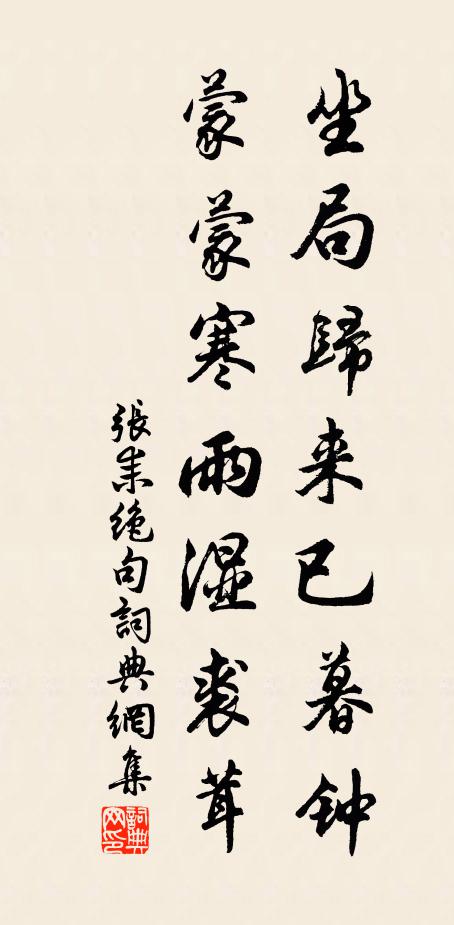 坐局歸来已暮钟
蒙蒙寒雨濕裘茸
張耒绝句詞典網集
詞典网印